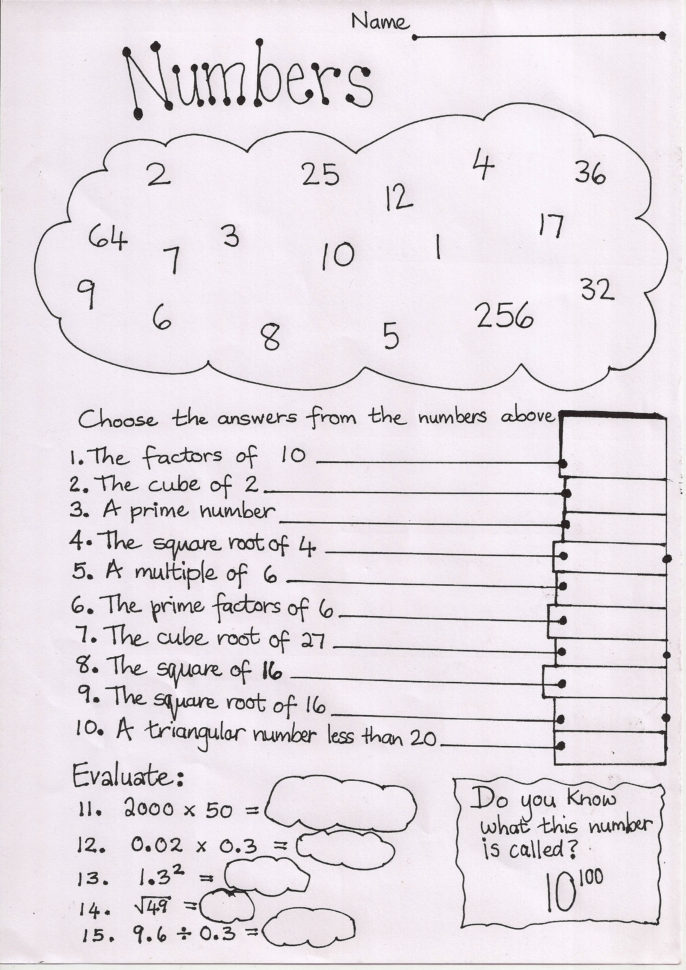 Name
Numbers
2 25 4 36
12
64 7 3 10 1 17
9 6 8 5 256 32
Choose the answers from the numbers above
1. The factors of 10
2. The cube of 2
3. A prime number
4. The square root of 4
5. A multiple of 6
6. The prime factors of 6
7. The cube root of 27
8. The square of 16
9. The square root of 16
10. A triangular number less than 20
Evaluate:
11. 2000 x 50 =
12. 0.02 x 0.3 =
13. 1.3² =
14. √49 =
15. 9.6 ÷ 0.3 =
Do you know
what this number
is called?
10¹⁰⁰